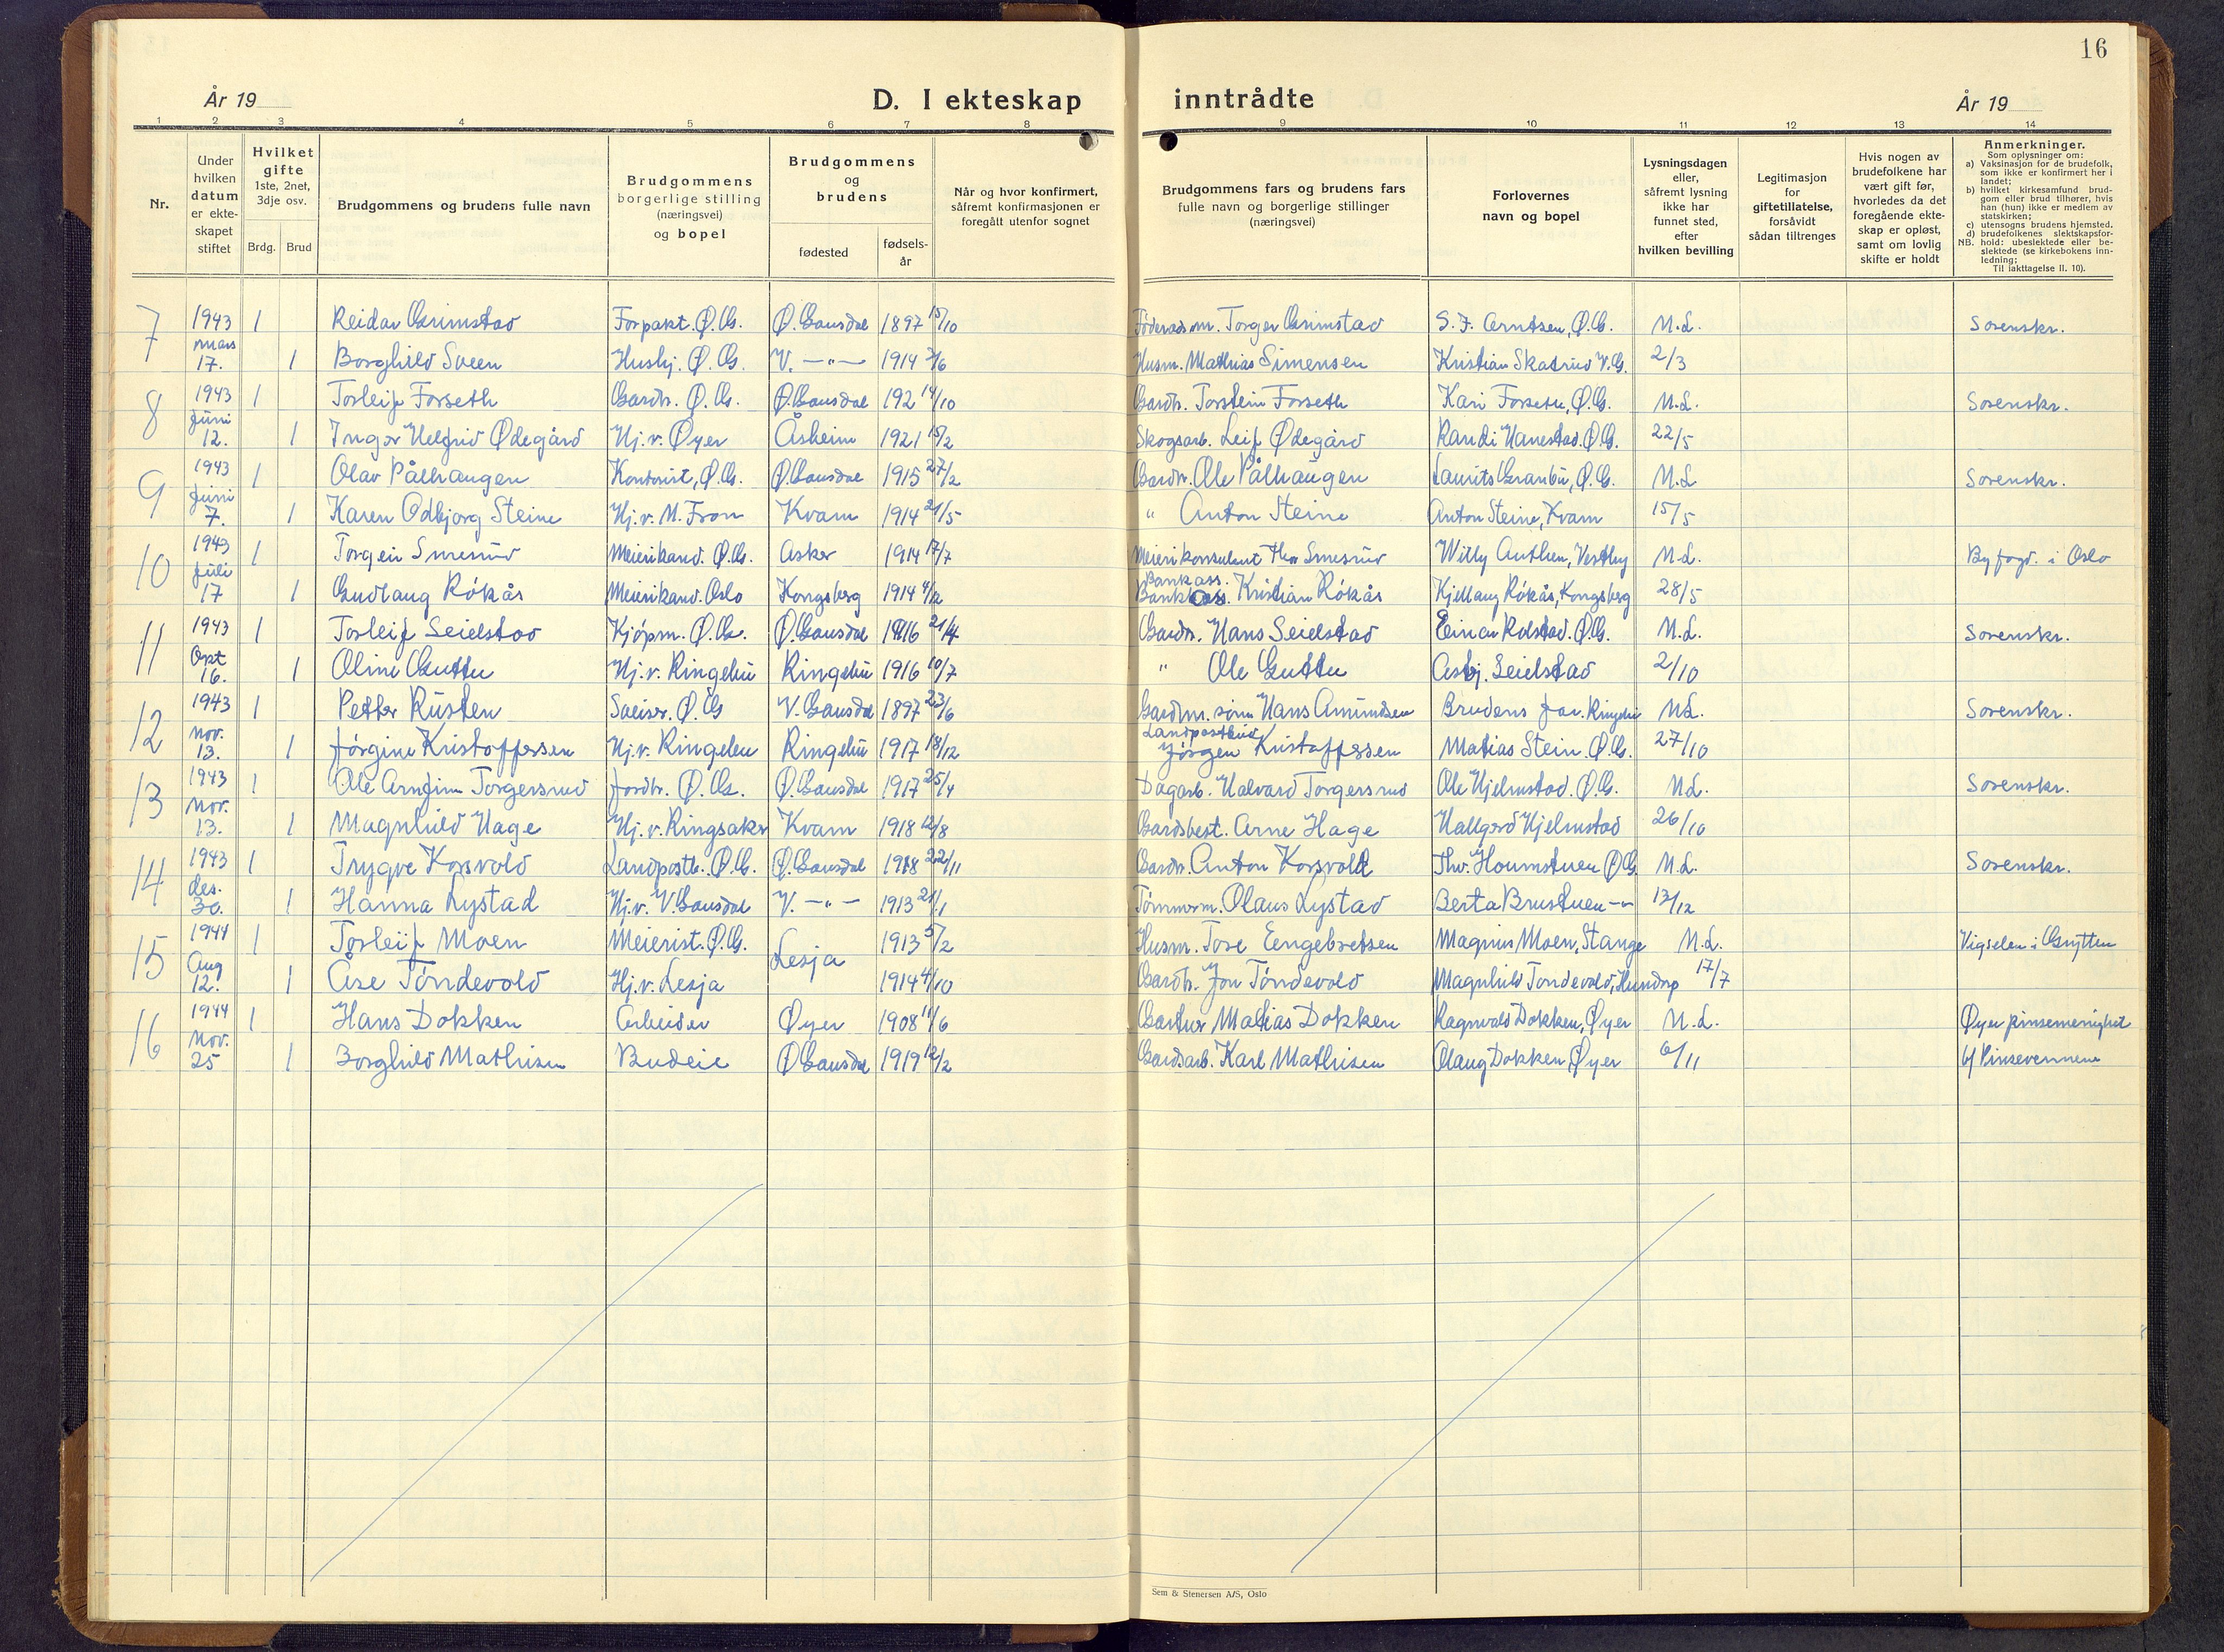 16
År 19
D. I ekteskap inntrådte
År 19
1 2 3 4 5 6 7 8 9 10 11 12 13 14
Nr.
Under hvilken datum er ekte-skapet stiftet
Hvilket gifte 1ste, 2net, 3dje osv.
Brdg. Brud
Brudgommens og brudens fulle navn
Brudgommens borgerlige stilling (næringsvei) og bopel
Brudgommens og brudens
fødested fødsels-år
Når og hvor konfirmert, såfremt konfirmasjonen er foregått utenfor sognet
Brudgommens fars og brudens fars fulle navn og borgerlige stillinger (næringsvei)
Forlovernes navn og bopel
Lysningsdagen eller, såfremt lysning ikke har funnet sted, efter hvilken bevilling
Legitimasjon for giftetillatelse, forsåvidt sådan tiltrenges
Hvis nogen av brudefolkene har vært gift før, hvorledes da det foregående ekte-skap er opløst, samt om lovlig skifte er holdt
Anmerkninger.
Som oplysninger om:
a) Vaksinasjon for de brudefolk, som ikke er konfirmert her i landet;
b) hvilket kirkesamfund brud-gom eller brud tilhører, hvis han (hun) ikke er medlem av statskirken;
c) utensogns brudens hjemsted.
d) brudefolkenes slektskapsfor-
NB. hold: ubeslektede eller be-slektede (se kirkebokens inn-ledning;
Til iakttagelse II. 10).
7 1943 1 Reidar Grimstad Forpakt. Ø.G. Ø. Gausdal 1897 15/10 Föderadsm. Torger Grimstad S. F. Arntsen, Ø.G. N.L. Sorenskr.
mars 17. 1 Borghild Sveen Hushj. Ø.G. V. —"— 1914 Husm. Mathias Simensen Kristian Skatrud V.G. 2/3
8 1943 1 Torleif Forseth Gardbr. Ø.G. Ø. Gausdal 192 14/10 Gardb. Torstein Forseth Kari Forseth, Ø.G. N.L. Sorenskr.
Juni 12. 1 Inger Helfrid Ødegård Hj.v. Øyer Åsheim 1921 15/2 Skogsarb. Leif Ødegård Randi Hanestad. Ø.G. 22/5
9 1943 1 Olav Pålhaugen Kontorist, Ø.G. Ø. Gausdal 1915 27/2 Gardbr. Ole Pålhaugen Laurits Granbu, Ø.G. N.L. Sorenskr.
Juni 7. 1 Karen Odbjørg Steine Hj.v. N. Fron Kvam 1914 21/5 " Anton Steine Anton Steine, Kvam 15/5
10 1943 1 Torgeir Smerud Meierikand. Ø.G. Asker 1914 17/7 Meierikonsulent Thor Smerud Willy Authen, Vestby N.L. Byfogd. i Oslo
Juli 17 1 Gudlaug Rókås Meierikand. Oslo Kongsberg 1914 4/12 Bankass. Kristian Rókås Kjellaug Rókås, Kongsberg 28/5
11 1943 1 Torleif Seielstad Kjópm. Ø.G. Ø. Gausdal 1916 21/4 Gardbr. Hans Seielstad Einar Rolstad. Ø.G. N.L. Sorenskr.
Okt 16. 1 Oline Guttu Hj.v. Ringebu Ringebu 1916 10/7 " Ole Guttu Asbj. Seielstad 2/10
12 1943 1 Petter Rusten Sveiser. Ø.G V. Gausdal 1897 23/6 Gardm. sönn Hans Amundsen Brudens far. Ringebu N.L. Sorenskr.
nov. 13. 1 Jórgine Kristoffersen Hj.v. Ringebu Ringebu 1917 18/12 Landpostbud Jórgen Kristoffersen Matias Stein. Ø.G. 27/10
13 1943 1 Ole Arnfinn Torgersrud Jordbr. Ø.G. Ø. Gausdal 1917 25/4 Dagarb. Halvard Torgersrud Ole Hjelmstad. Ø.G. N.L. Sorenskr.
nov. 13. 1 Magnhild Hage Hj.v. Ringsaker Kvam 1918 12/8 Gardsbest. Arne Hage Hallgerd Hjelmstad 26/10
14 1943 1 Trygve Korsvold Landpostb. Ø.G. Ø. Gausdal 1918 22/11 Gardbr. Anton Korsvold Thv. Houmstuen Ø.G. N.L. Sorenskr.
des. 30. 1 Hanna Lystad Hj.v. V. Gausdal V. —"— 1913 21/1 Tömmerm. Olaus Lystad Berta Brustuen —"— 13/12
15 1944 1 Torleif Moen Meierist. Ø.G. Lesja 1913 5/2 Husm. Tore Eengebretsen Magnus Moen, Stange N.L. Vigselen i Grytten
Aug 12. 1 Åse Tóndevold Hj.v. Lesja 1914 4/10 Gardb. Jon Tóndevold Magnhild Tondevold, Hundorp 17/7
16 1944 1 Hans Dokken Arbeider Øyer 1908 11/6 Gartner Matias Dokken Ragnvald Dokken, Øyer N.L. Øyer pinsemenighet
Nov. 25 1 Borghild Mathisen Budeie Ø Gausdal 1919 12/2 Gardsarb. Karl Mathisen Olaug Dokken, Øyer 6/11 b/ Pinsevennene
Sem & Stenersen A/S, Oslo